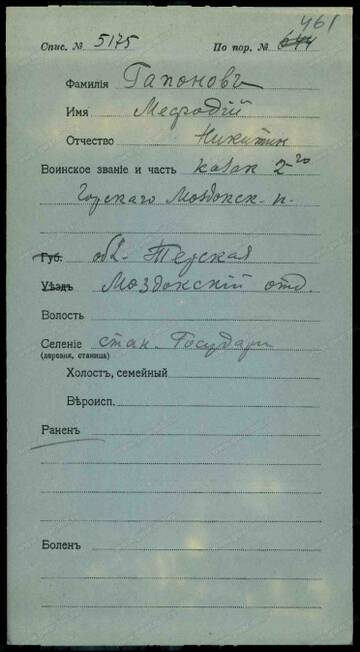 461
Спис. № 5175 По пор. № 644
Фамилія Гапоновъ
Имя Мефодій
Отчество Никитин
Воинское званіе и часть казак 2-го
Горскаго Моздокск. п.
Губ. обл. Терская
Уѣздъ Моздокскій отд.
Волость
Селеніе стан. Государ
(деревня, станица)
Холостъ, семейный
Вѣроисп.
Раненъ
Боленъ